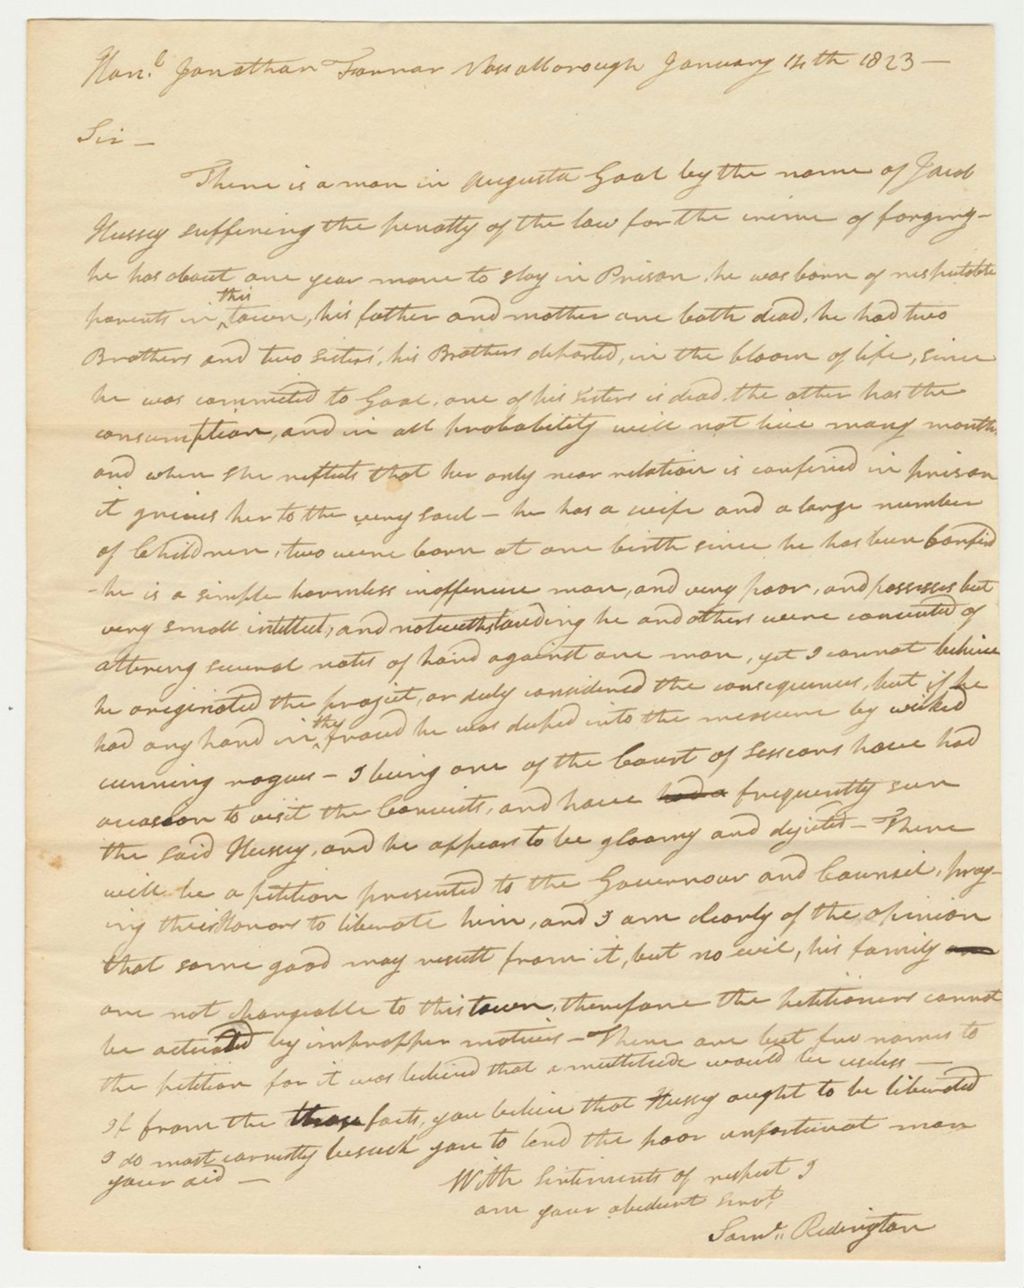 Hon.e Jonathan Farrar Vassalborough January 14th 1823 —
Sir —
There is a man in Augusta Goal by the name of Jacob
Hussey suffering the penalty of the law for the crime of forging —
he has about one year more to stay in Prison. he was born of respectable
parents in this town, his father and mother are both dead, he had two
Brothers and two sisters, his Brothers departed, in the bloom of life, since
he was committed to Goal, one of his sisters is dead. the other has the
consumption, and in all probability will not live many months
and when she reflects that her only near relation is confined in prison
it grieves her to the very soul — he has a wife and a large number
of Children, two were born at one birth since he has been Confin'd
- he is a simple harmless inoffencive man, and very poor, and possesses but
very small intellect, and notwithstanding he and others were convicted of
altering several notes of hand against one man, yet I cannot believe
he originated the project, or duly considered the consequences, but if he
had any hand in the fraud he was duped into the measure by wicked
cunning rogues — I being one of the Court of Sessions have had
occasion to visit the Convicts, and have had a frequently seen
the said Hussey, and he appears to be gloomy and dejected — There
will be a petition presented to the Governour and Counsil, pray-
ing their Honors to liberate him, and I am clearly of the opinion
that some good may result from it, but no evil, his family are
are not chargeable to this town, therefore the petitioners cannot
be actuated by impropper motives — There are but few names to
the petition for it was believed that a multitude would be useless —
If from the those facts, you believe that Hussey ought to be liberated
I do most earnestly beseech you to lend the poor unfortunat man
your aid —
With Sentiments of respect I
am your obedient Servt
Saml. Redington